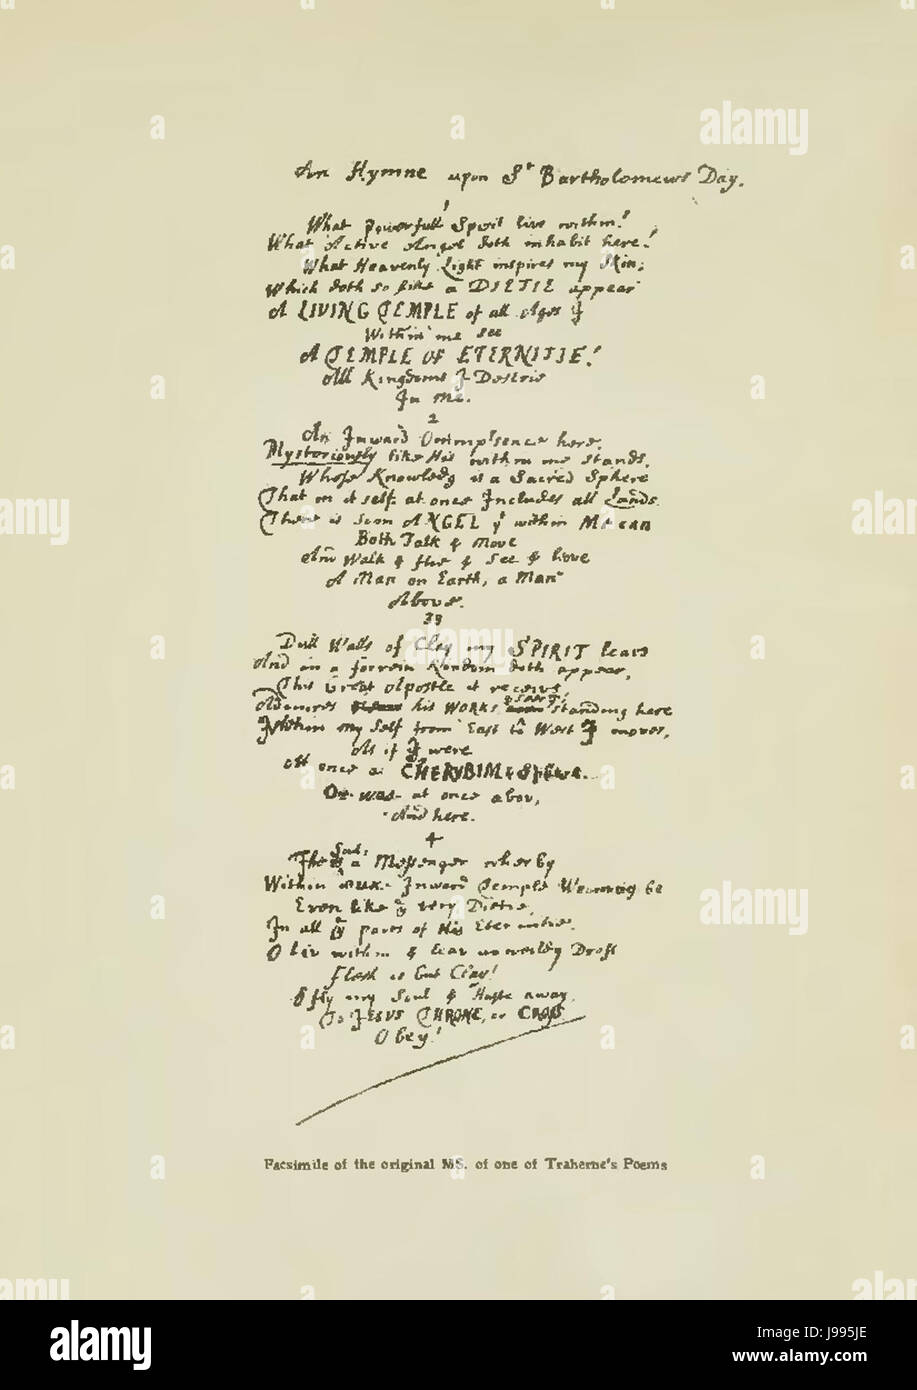 An Hymne upon St Bartholomews Day.
1
What powerfull Spirit livs within!
What Active Angel doth inhabit here!
What Heavenly Light inspires my Skin;
Which doth so like a DIETIE appear
A LIVING TEMPLE of all Ages I
Within me see
A TEMPLE OF ETERNITIE!
All Kingdoms I Descrie
In Me.
2
An Inward Omnipresence here,
Mysteriously like His with in me stands,
Whose Knowledg is a Sacred Sphere
That in it self at once Includes all Lands.
There is som ANGEL yt within Me can
Both Talk & Move
And Walk & flie & See & Love
A Man on Earth, a Man
Above.
3
Dull Walls of Clay my SPIRIT leavs
And in a forrein Kingdom doth appear,
This Great Apostle it receivs,
Admires his WORKS & sees them, standing here
Within my Self from East to West I move,
As if I were
At once a CHERUBIM & Sphere.
Or was at once abov,
And here.
4
The Soul's a Messenger wherby
Within our Inward Temple We may be
Even like ye very Dietie,
In all ye parts of His Eternitie.
O liv within & leav unwieldy Dross
Flesh is but Clay!
O fly my Soul & Haste away
To JESUS THRONE, or CROSS
Obey!
Facsimile of the original MS. of one of Traherne's Poems
a
alamy
Image ID: J995JE
www.alamy.com